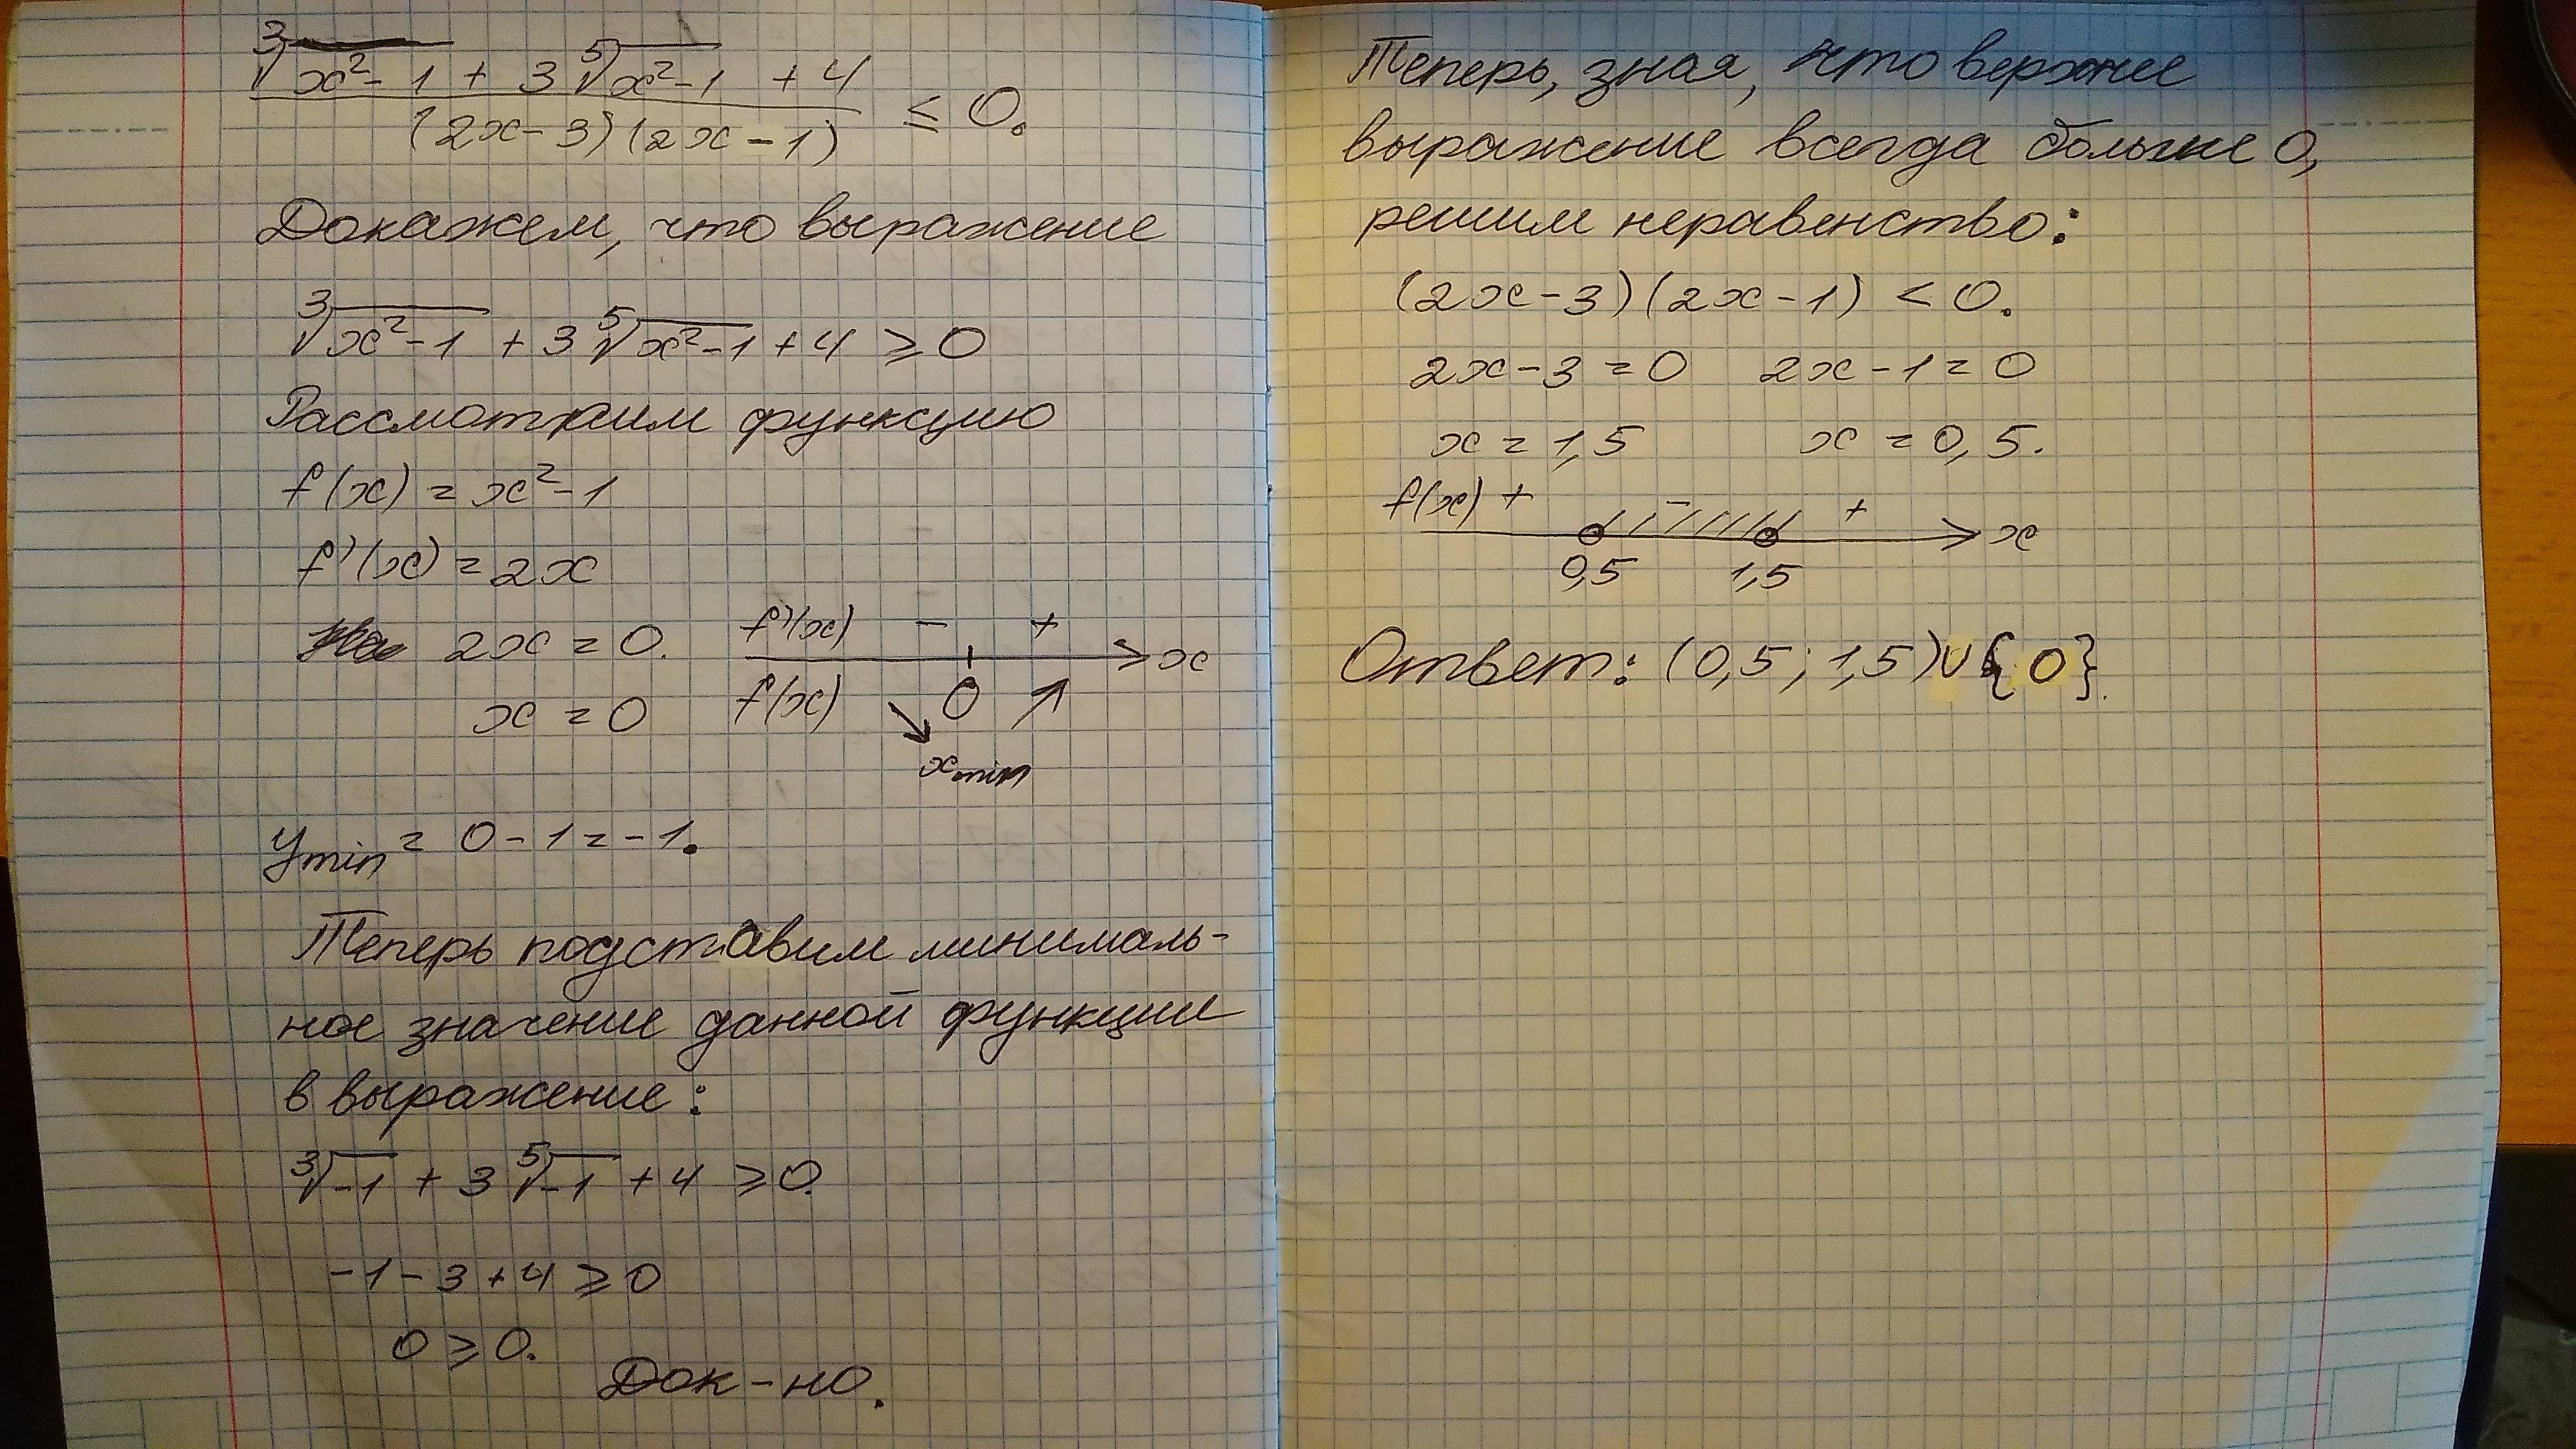 ∛(x²-1) + 3⁵√(x²-1) + 4
(2x-3)(2x-1) ≤ 0.
Докажем, что выражение
∛(x²-1) + 3⁵√(x²-1) + 4 ≥ 0
Рассмотрим функцию
f(x) = x²-1
f'(x) = 2x
2x = 0. f'(x) - + x
x = 0 f(x) ↘ 0 ↗
xmin
ymin = 0-1 = -1.
Теперь подставим минималь-
ное значение данной функции
в выражение:
∛-1 + 3⁵√-1 + 4 ≥ 0.
-1-3+4 ≥ 0
0 ≥ 0.
Док-но.
Теперь, зная, что верхнее
выражение всегда больше 0,
решим неравенство:
(2x-3)(2x-1) < 0.
2x-3 = 0 2x-1 = 0
x = 1,5 x = 0,5.
f(x) + - + x
0,5 1,5
Ответ: (0,5; 1,5)∪{0}.